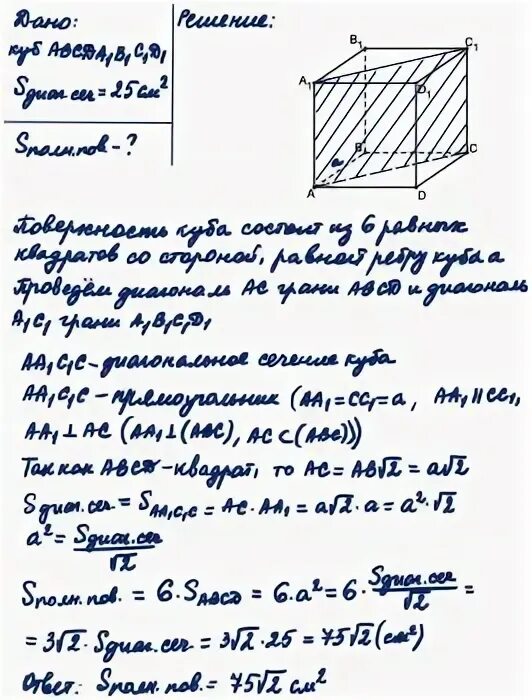 Дано:
куб ABCDA₁B₁C₁D₁
Sдиаг.сеч = 25 см²
Sполн.пов - ?
Решение:
B₁
C₁
A₁
D₁
B
a
C
A
D
Поверхность куба состоит из 6 равных
квадратов со стороной, равной ребру куба a
Проведём диагональ AC грани ABCD и диагональ
A₁C₁ грани A₁B₁C₁D₁
AA₁C₁C - диагональное сечение куба
AA₁C₁C - прямоугольник (AA₁ = CC₁ = a, AA₁ ∥ CC₁,
AA₁ ⊥ AC (AA₁ ⊥ (ABC), AC ⊂ (ABC)))
Так как ABCD - квадрат, то AC = AB√2 = a√2
Sдиаг.сеч = S_AA₁C₁C = AC · AA₁ = a√2 · a = a² · √2
a² = Sдиаг.сеч / √2
Sполн.пов. = 6 · S_ABCD = 6 · a² = 6 · Sдиаг.сеч / √2 =
= 3√2 · Sдиаг.сеч = 3√2 · 25 = 75√2 (см²)
Ответ: Sполн.пов. = 75√2 см²